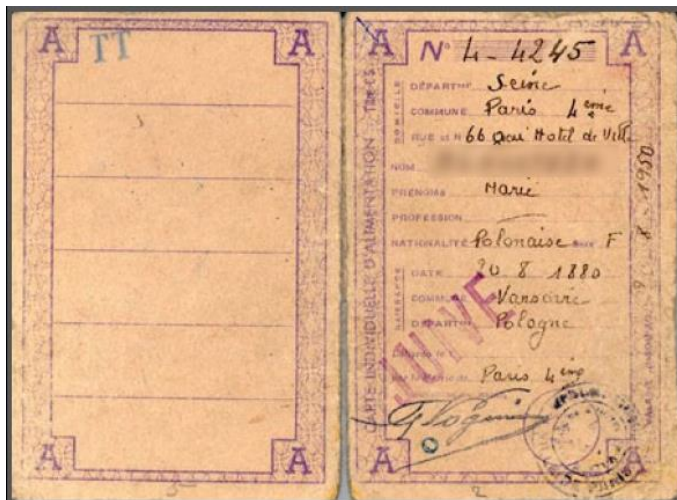 A TT A
A A
A N° 4-4245 A
CARTE INDIVIDUELLE D'ALIMENTATION
DOMICILE
DÉPARTMT Seine
COMMUNE Paris 4eme
RUE et N° 66 Quai Hotel de Ville
NOM
PRÉNOMS Marie
PROFESSION
NATIONALITÉ Polonaise F
DATE 20 8 1880
COMMUNE Varsovie
DÉPARTMT Pologne
JUIVE
Paris 4eme
A A
8 - 1950